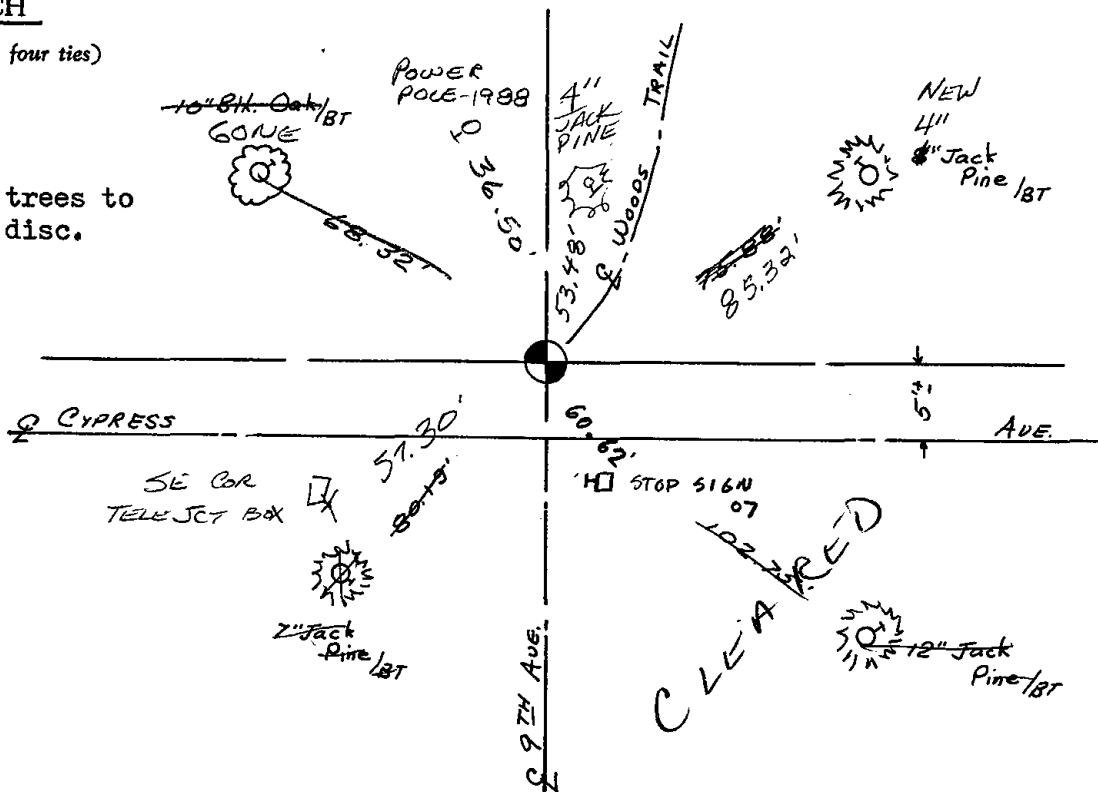 CH
four ties)
trees to
disc.
10" Blk. Oak/BT
GONE
68.32'
POWER
POLE-1988
36.50'
4"
JACK
PINE
53.48'
℄ WOODS TRAIL
NEW
4"
Jack
Pine/BT
75.88'
85.32'
5'±
℄ CYPRESS AVE.
57.30'
80.19'
60.62'
SE COR
TELE JCT BOX
STOP SIGN
07
102.75'
CLEARED
7" Jack
Pine/BT
12" Jack
Pine/BT
℄ 9TH AVE.